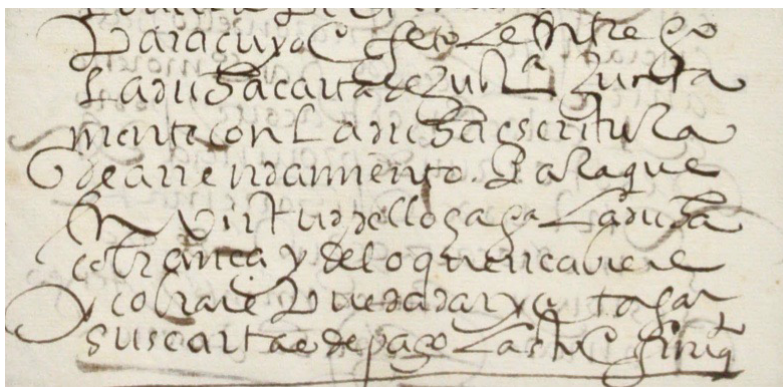 Para cuyo efeto le entrego
la dicha carta de
mente con la dicha escritura
de arrendamiento. Para que
en virtud dello haga la dicha
cobranca y de lo que rrecaviere
y cobrare pueda dar y otorgar
sus cartas de pago